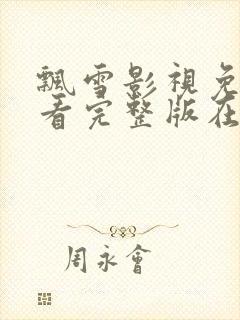 飄雪影視免
看完整版在
周永會